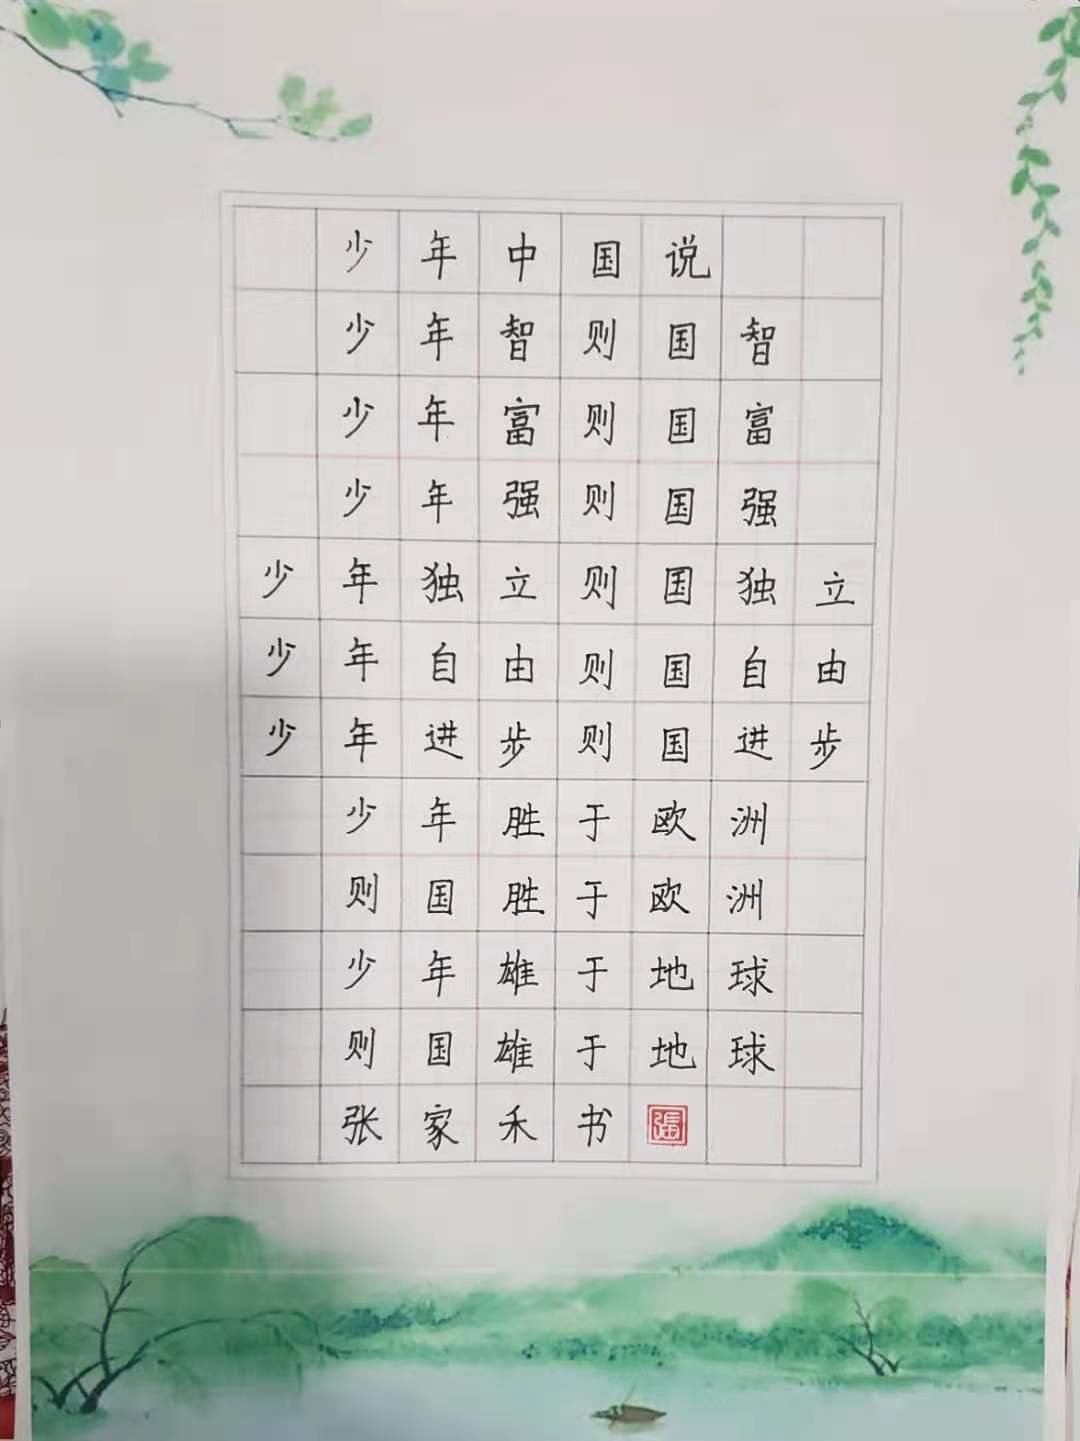 少年中国说
少年智则国智
少年富则国富
少年强则国强
少年独立则国独立
少年自由则国自由
少年进步则国进步
少年胜于欧洲
则国胜于欧洲
少年雄于地球
则国雄于地球
张家禾书 張